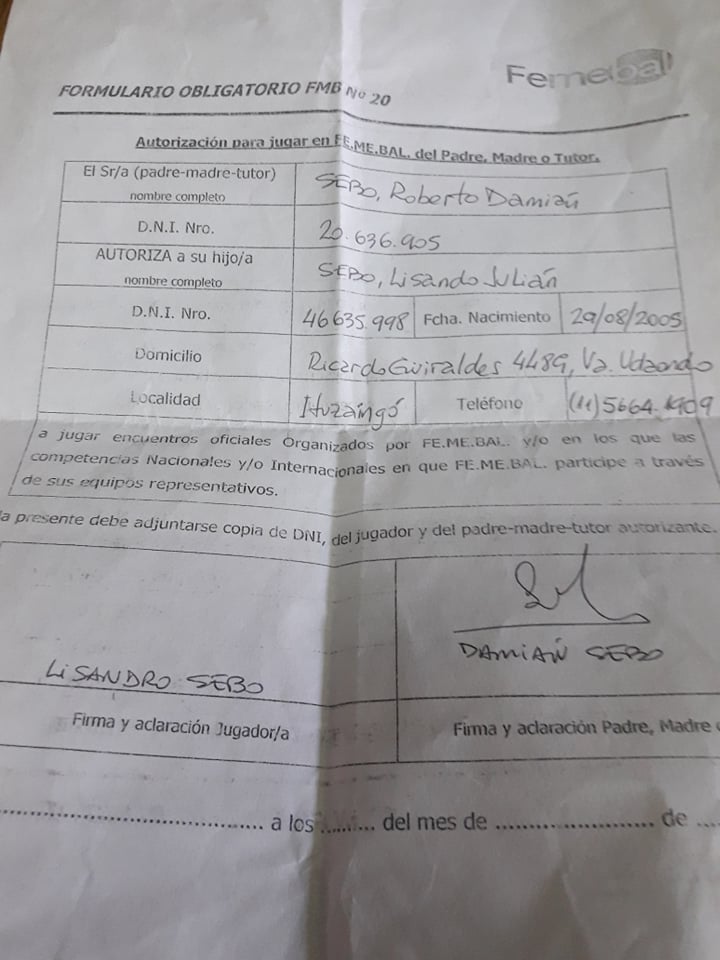 Femebal
FORMULARIO OBLIGATORIO FMB Nº 20
Autorización para jugar en FE.ME.BAL. del Padre, Madre o Tutor.
El Sr/a (padre-madre-tutor)
nombre completo
SEBO, Roberto Damián
D.N.I. Nro.
20.636.905
AUTORIZA a su hijo/a
nombre completo
SEBO, Lisando Julián
D.N.I. Nro.
46635.998
Fcha. Nacimiento
29/08/2005
Domicilio
Ricardo Guiraldes 4489, Va. Udaondo
Localidad
Ituzaingó
Teléfono
(11)5664.1909
a jugar encuentros oficiales Organizados por FE.ME.BAL. y/o en los que las
competencias Nacionales y/o Internacionales en que FE.ME.BAL. participe a través
de sus equipos representativos.
la presente debe adjuntarse copia de DNI, del jugador y del padre-madre-tutor autorizante.
LISANDRO SEBO
DAMIAÑ SEBO
Firma y aclaración Jugador/a
Firma y aclaración Padre, Madre
a los ......... del mes de ........................ de ....